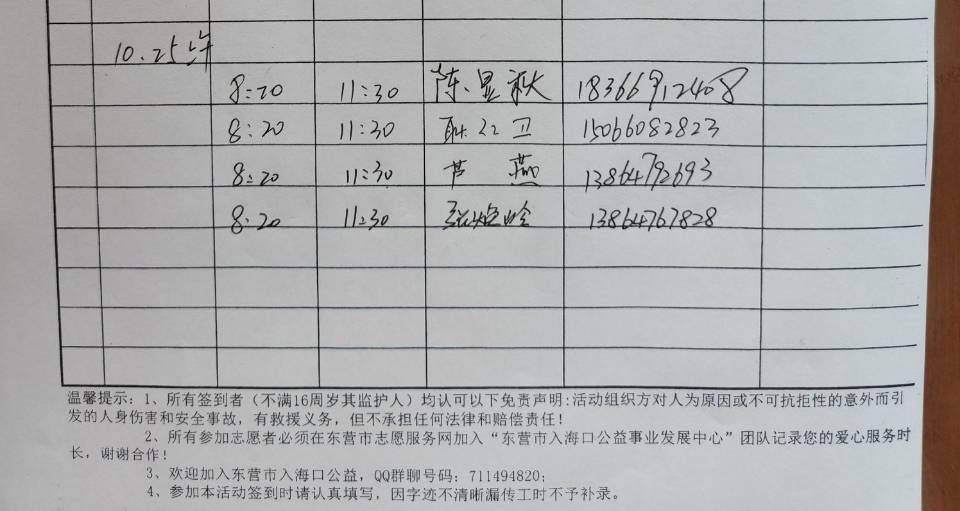 10.25
8:20 11:30 陈显秋 18366912408
8:20 11:30 耿立卫 15066082823
8:20 11:30 芦燕 13864792693
8:20 11:30 13864767828
温馨提示：1、所有签到者（不满16周岁其监护人）均认可以下免责声明:活动组织方对人为原因或不可抗拒性的意外而引
发的人身伤害和安全事故，有救援义务，但不承担任何法律和赔偿责任！
2、所有参加志愿者必须在东营市志愿服务网加入“东营市入海口公益事业发展中心”团队记录您的爱心服务时
长，谢谢合作！
3、欢迎加入东营市入海口公益，QQ群聊号码：711494820；
4、参加本活动签到时请认真填写，因字迹不清晰漏传工时不予补录。